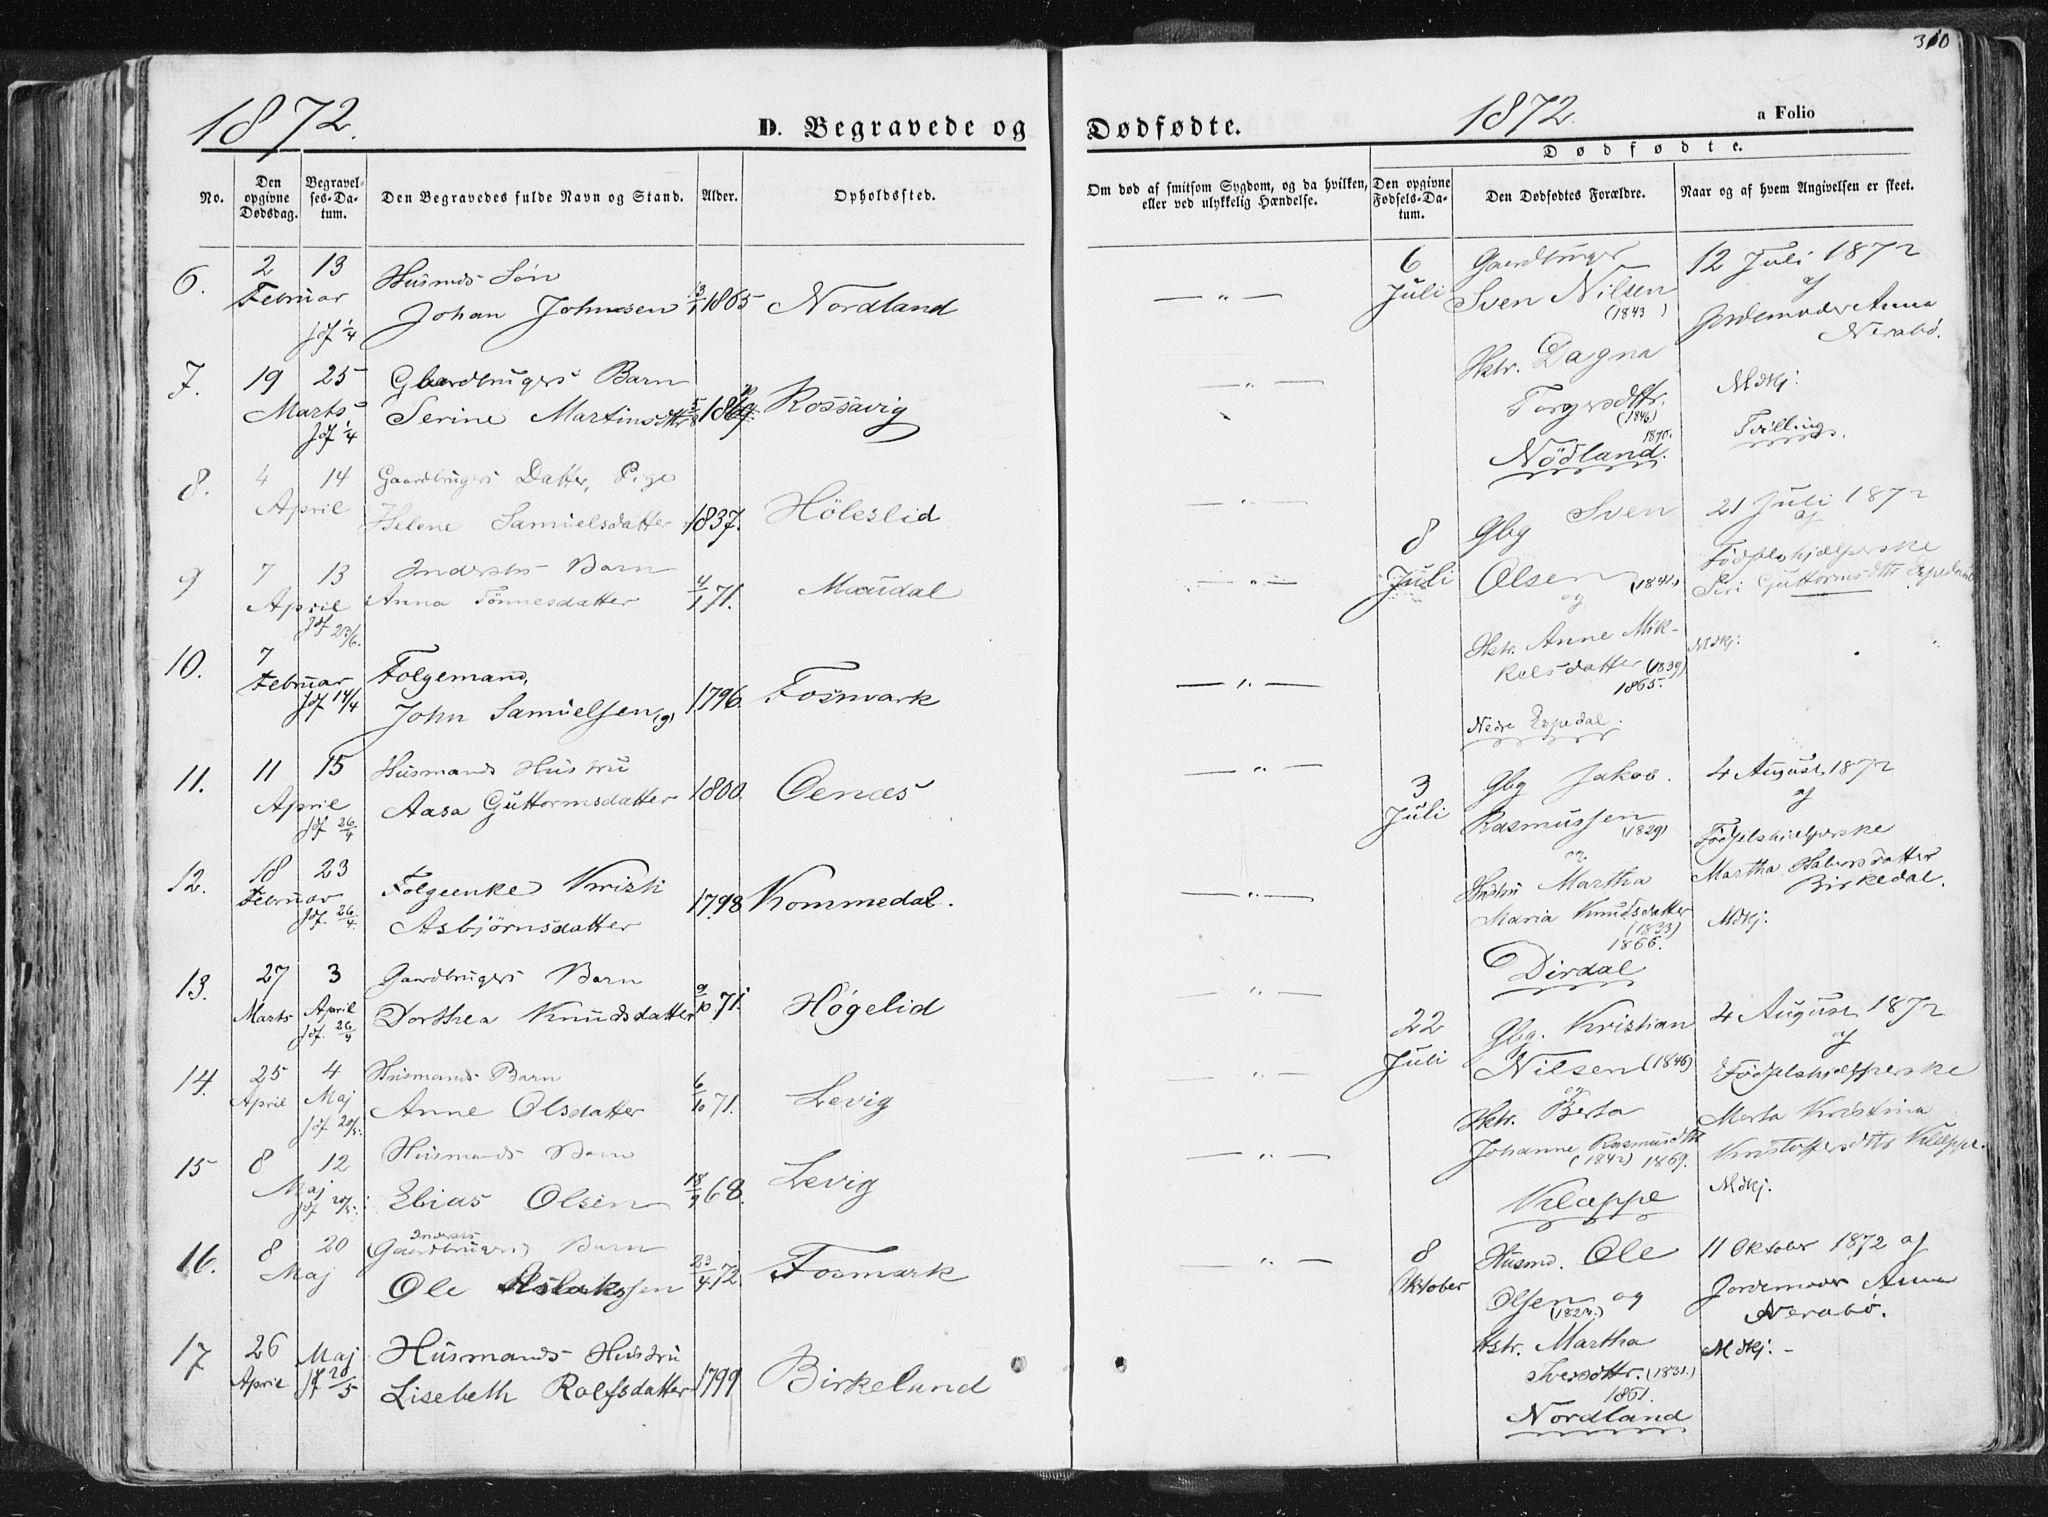 310
1872.
D. Begravede og
Dødfødte.
1872
a Folio
No.
Den opgivne Dødsdag.
Begravelses-Datum.
Den Begravedes fulde Navn og Stand.
Alder.
Opholdssted.
Om død af smitsom Sygdom, og da hvilken, eller ved ulykkelig Hændelse.
Dødfødte.
Den opgivne Fødsels-Datum.
Den Dødfødtes Forældre.
Naar og af hvem Angivelsen er skeet.
6. 2 Februar 13 Jdf 1/4 Husmds Søn
Johan Johnesen 13/1 1865 Nordland — „ —
7. 19 Marts 25 Jdf 1/4 Gaardbrugers Barn
Serine Martinsdtr Rossavig — „ —
8. 4 April 14 Gaardbrugers Datter, Pige
Helene Samuelsdatter 1837. Höleslid — „ —
9 7 April 13 Jdf 23/6. Inderstes Barn
Anna Tönnesdatter 4/1 71. Maudal — „ —
10. 7 Februar Jdf 14/4 Folgemand,
John Samuelsen (g) 1796. Fosmark — „ —
11. 11 April 15 Jdf 26/4 Husmands Hustru
Aasa Guttormsdatter 1800. Oenæs — „ —
12. 18 Februar 23 Jdf. 26/4. Folgeenke Kristi
Asbjørnsdatter 1798 Kommedal. — „ —
13. 27 Marts 3 April Jdf. 26/4 Gaardbrugers Barn
Dorthea Knudsdatter 9/10 71. Høgelid — „ —
14. 25 April 4 Maj Jdf 20/5. Husmands Barn
Anne Olsdatter 6/10 71. Levig — „ —
15 8 Maj 12 Jdf 20/5. Husmands Barn
Elias Olsen 18/9 68. Levig — „ —
16. 8 Maj 20 Inderstes
(Gaardbrugers) Barn
Ole Aslaksen 23/4 72. Fosmark — „ —
17 26 April Maj Jdf 20/5 Husmands Hustru
Lisebeth Rolfsdatter 1799 Birkeland
6 Juli
Gaardbruger
Sven Nilsen
(1843)
Hstr. Dagna
Torgersdttr.
(1846)
1870.
Nödland.
12 Juli 1872
af
Jordemoder Anna
Nerabö.
Mdkj:
Tvilling.
8 Juli
Gbg Sven
Olsen (1841.)
og
Hstr. Anne Mik-
kelsdatter (1839)
1865.
Nedre Espedal.
21 Juli 1872
af
Födselshjælperske
Siri Guttormsdtr Espedal
Mdkj:
3 Juli
Gbg Jakob.
Rasmussen
(1829)
og
Hustru Martha
Maria Knudsdatter
(1833)
1866.
Dirdal
4 August 1872
af
Födselshjælperske
Martha
Birkedal.
Mdkj:
22 Juli
Gbg. Kristian
Nilsen (1846)
og
Hstr. Berta
Johanne Rasmusdtr
(1842) 1869.
Klæppe
4 August 1872
af
Födselshjælperske
Marta Kristina
Kristoffersdtr Klæppe.
Mdkj.
8 Oktober
Husmd. Ole
Olsen og
Hstr. Martha
Iversdttr. (1831.)
1861.
Nordland
11 Oktober 1872 af
Jordemoder Anna
Nerabö.
Mdkj: -